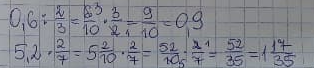 0,6 : 2/3 = 6³/10 · 3/2₁ = 9/10 = 0,9
5,2 · 2/7 = 5 2/10 · 2/7 = 52/10₅ · 2¹/7 = 52/35 = 1 17/35